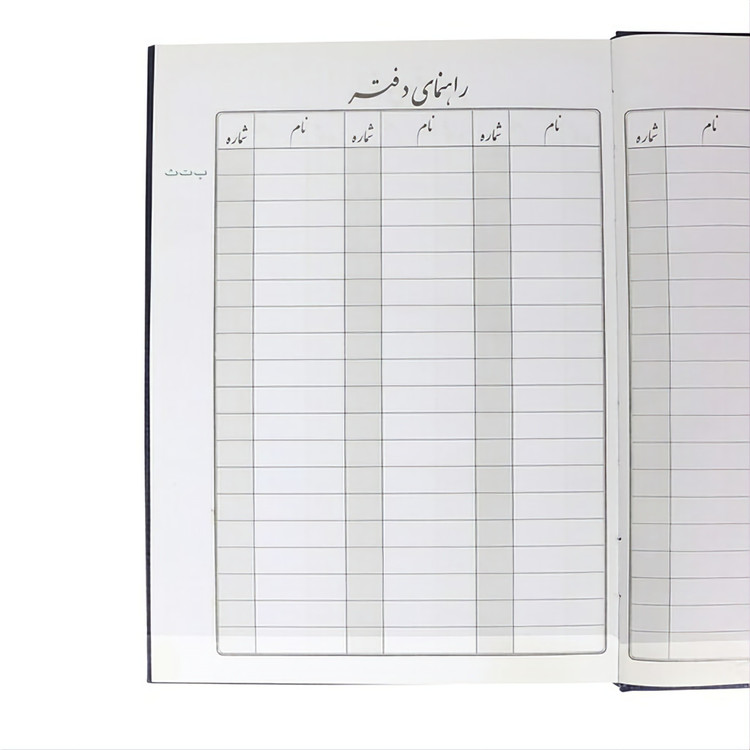 راهنمای دفتر
نام شماره نام شماره نام شماره
ب ت ث
نام شماره